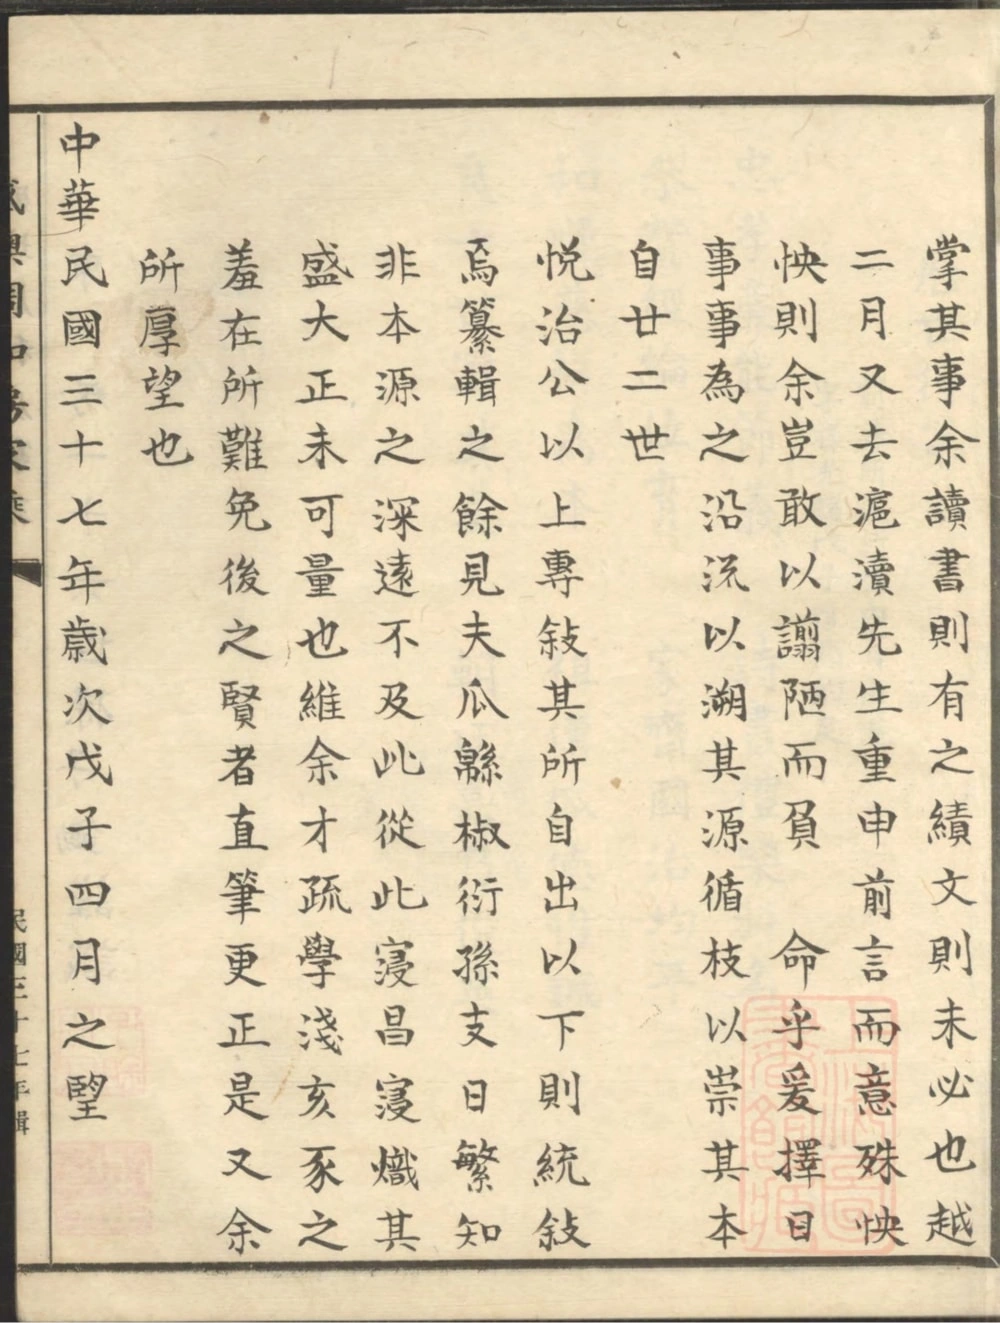 掌其事余讀書則有之績文則未必也越
二月又去滬瀆先生重申前言而意殊怏
怏則余豈敢以譾陋而負　命乎爰擇日
事事為之沿流以溯其源循枝以崇其本
自廿二世
悅治公以上專敍其所自出以下則統敍
焉纂輯之餘見夫瓜緜椒衍孫支日繁知
非本源之深遠不及此從此寖昌寖熾其
盛大正未可量也維余才疏學淺亥豕之
羞在所難免後之賢者直筆更正是又余
所厚望也
中華民國三十七年歲次戊子四月之朢
民國三十七年輯